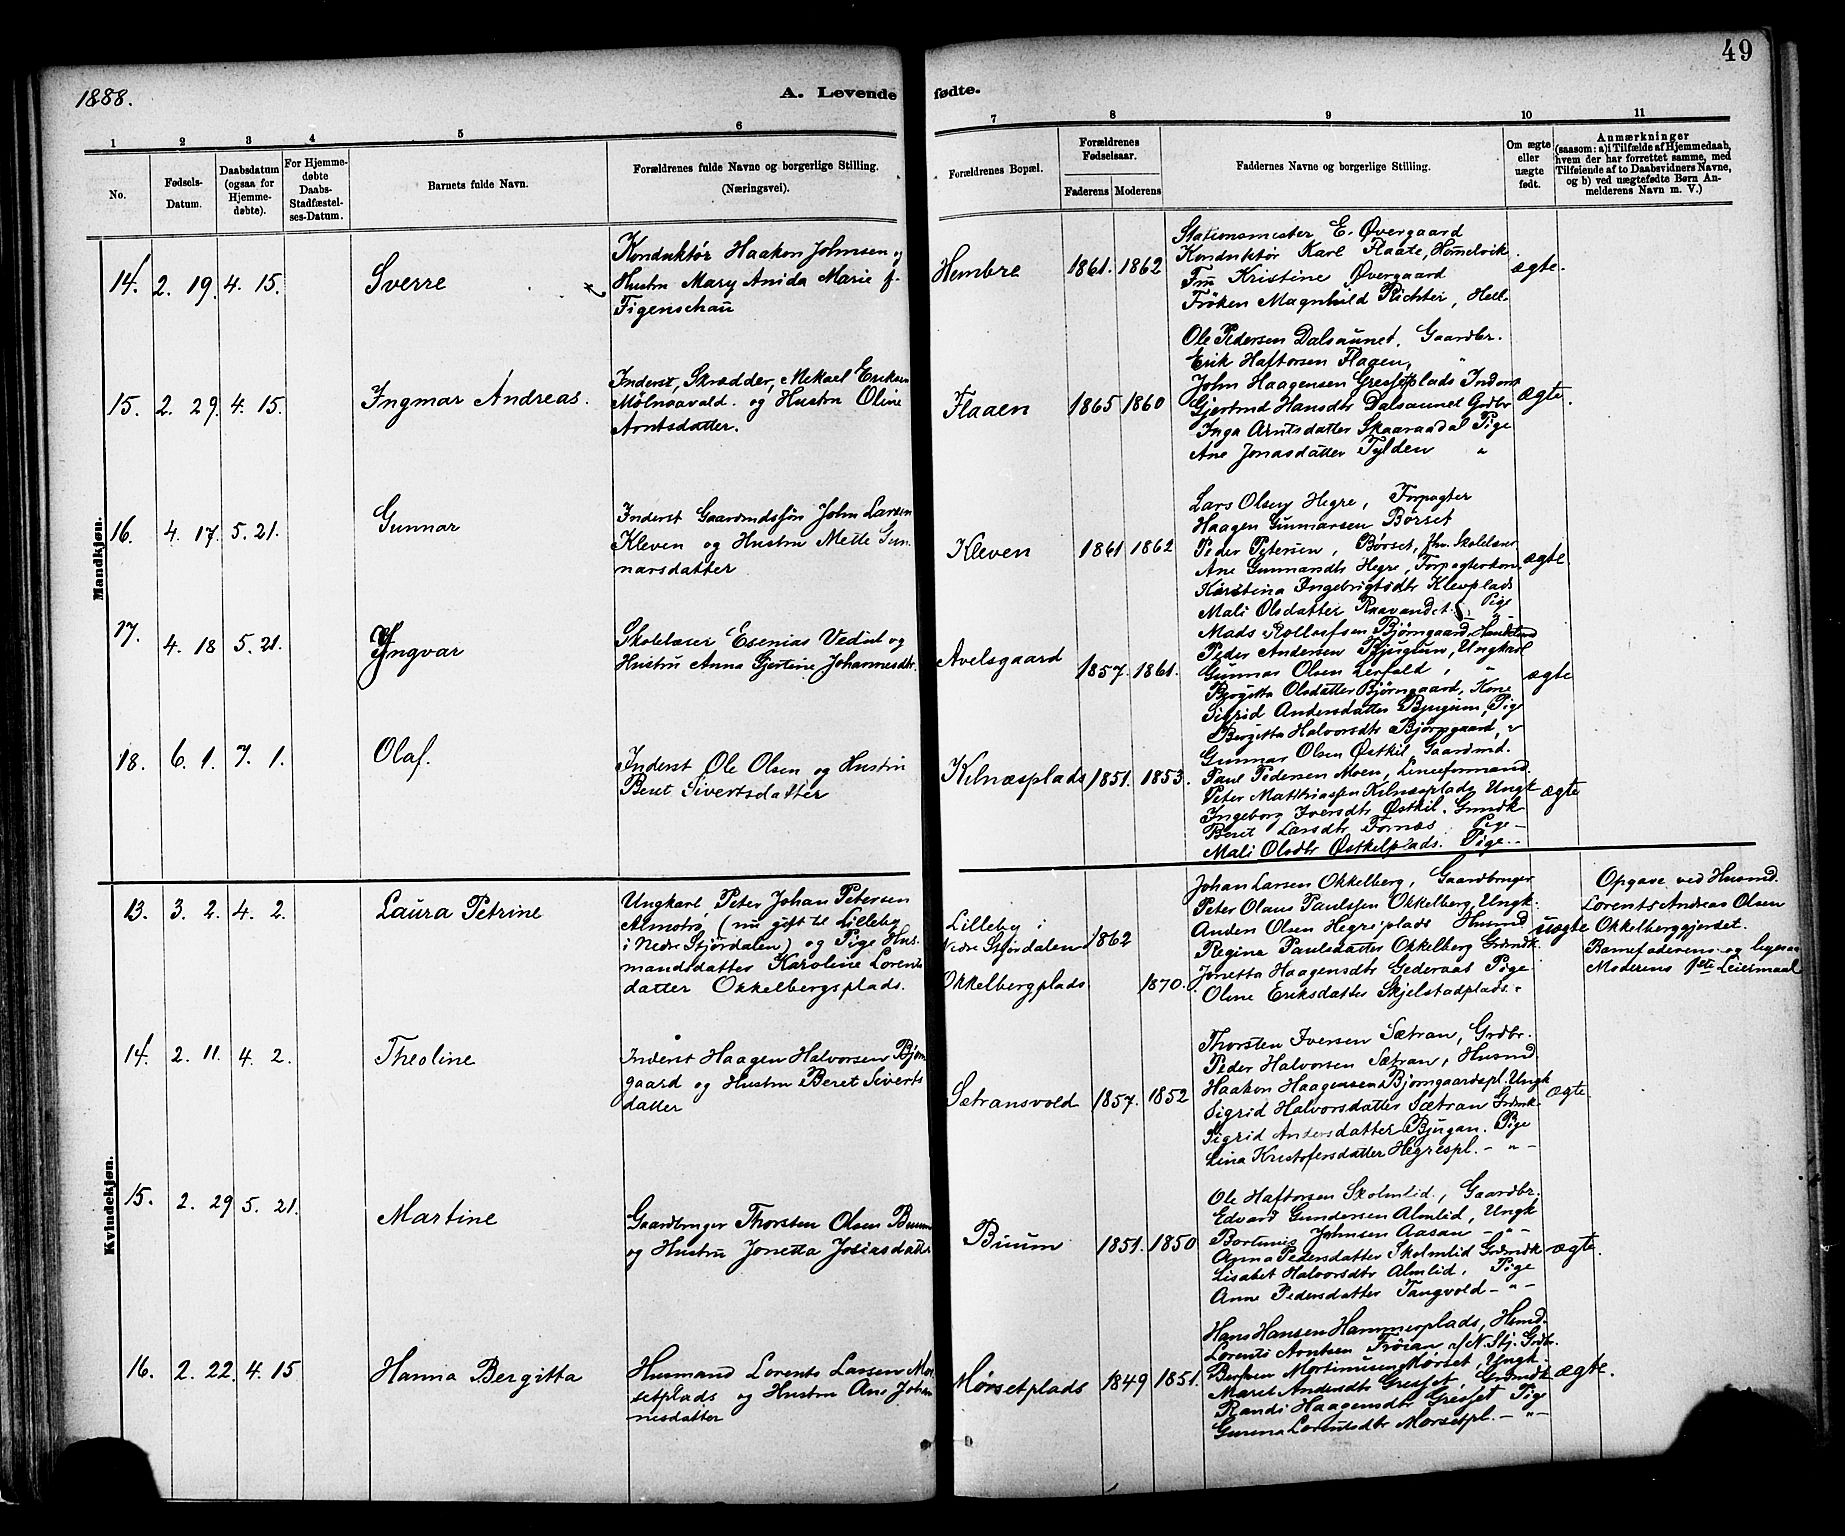 49
1888.
A. Levende fødte.
1 2 3 4 5 6 7 8 9 10 11
No.
Fødsels-
Datum.
Daabsdatum
(ogsaa for
Hjemme-
døbte).
For Hjemme-
døbte
Daabs-
Stadfæstel-
ses-Datum.
Barnets fulde Navn.
Forældrenes fulde Navne og borgerlige Stilling.
(Næringsvei).
Forældrenes Bopæl.
Forældrenes
Fødselsaar.
Faderens Moderens
Faddernes Navne og borgerlige Stilling.
Om ægte
eller
uægte
født.
Anmærkninger
(saasom: a) i Tilfælde af Hjemmedaab,
hvem der har forrettet samme, med
Tilføiende af to Daabsvidners Navne,
og b) ved uægtefødte Børn An-
melderens Navn m. V.)
Mandkjøn.
14. 2. 19. 4. 15. Sverre
Konduktør Haaken Johnsen og
Hustru Mary Anida Marie f.
Figenschau
Hembre 1861. 1862
Stationsmester E. Øvergaard
Konduktør Karl Flaate, Hommelvik.
Fru Kristine Øvergaard
Frøken Magnhild Richter, Hell
ægte.
15. 2. 29. 4. 15. Ingmar Andreas.
Inderst, Skrædder, Mikael Eriksen
Mølnaavald. og Hustru Oline
Arntsdatter.
Flaaen 1865 1860
Ole Pedersen Dalsaunet, Gaardbr.
Erik Haftorsen Flagen, "
John Haagensen Gressetplads Inders
Gjertrud Hansdtr Dalsaunet Grdbr
Inga Arntsdatter Skaaraadal Pige
Ane Jonasdatter Fylden "
ægte.
16. 4. 17. 5. 21. Gunnar
Inderst Gaardmdssøn John Larsen
Kleven og Hustru Mette Gun-
narsdatter
Kleven 1861 1862
Lars Olsen Hegre, Forpagter
Haagen Gunnarsen Børset
Peder Petersen, Børset, fhv. Skolelærer
Ane Gunnarsdtr Hegre, Forpagterkon.
Kirstina Ingebrigtsdtr Klevplads
Mali Olsdatter Raavandet Pige
ægte.
17. 4. 18 5. 21. Yngvar
Skolelærer Esenias Vedul og
Hustru Anna Gjertine Johannesdtr.
Avelsgaard 1857. 1861.
Mads Rollaufsen Bjørngaard
Peder Andersen Bjugum, Ungkarl
Gunnar Olsen Lerfald, "
Bergitta Olsdatter Bjørngaard, Kone
Sigrid Andersdatter Bjugum, Pige
Bergitta Halvorsdtr Bjørngaard, "
ægte
18. 6. 1. 7. 1. Olaf.
Inderst Ole Olsen og Hustru
Beret Sivertsdatter
Kilnæsplads 1851. 1853.
Gunnar Olsen Østkil, Gaardmd.
Paul Pedersen Moen, Lineeformand.
Peter Matthiassen Kilnæsplads Ungk
Ingeborg Iversdtr Østkil. Grmdk
Beret Larsdtr Fornæs. Pige -
Mali Olsdtr Østkilplads. Pige. -
ægte
Kvindekjøn.
13. 3. 2. 4. 2. Laura Petrine
Ungkarl Peter Johan Petersen
Almotrø (nu gift til Lilleby
i Nedre Stjørdalen) og Pige Hus-
mandsdatter Karoline Lorents
datter Okkelbergsplads.
Lilleby i
Nedre Stjørdalen
Okkelbergplads
1862
1870.
Johan Larsen Okkelberg, Gaardbruger
Peter Olaus Paulssen Okkelberg, Ungk.
Anders Olsen Hegresplads Husmd
Regine Paulsdatter Okkelberg Grdmdk.
Jonetta Haagensdtr Gederaas Pige
Oline Eriksdatter Skjelstadplads. "
uægte
Opgave ved Husmd.
Lorents Andreas Olsen
Okkelberggjerdet.
Barnefaderens og ligesaa
Moderens 1ste Leiermaal
14. 2. 11. 4. 2. Theoline
Inderst Haagen Halvorsen Bjørn-
gaard og Hustru Beret Siverts
datter
Sætransvold 1857. 1852
Thorsten Iversen Sætran, Grdbr.
Peder Halvorsen Sætran, Husmd.
Haaken Haagensen Bjørngaardspl. Ungk
Sigrid Halvorsdatter Sætran Grdmk.
Sigrid Andersdatter Bjugan. Pige
Lina Kristofersdatter Hegrespl. - " -
ægte.
15. 2. 29 5. 21. Martine
Gaardbruger Thorsten Olsen Buum
og Hustru Jonetta Josiasdatt.
Buum 1851. 1850
Ole Haftorsen Skolmlid, Gaardbr.
Edvard Gundersen Almlid, Ungk
Bortinus Johnsen Aasan - " -
Anna Pedersdatter Skolmlid Grdmdk
Lisabet Halvorsdtr Almlid, Pige
Anne Pedersdatter Tangvold - " -
ægte.
16. 2. 22 4. 15 Hanna Bergitta
Husmand Lorents Larsen Mør-
setplads og Hustru Ane Johan
nesdatter
Mørsetplads 1849 1851.
Hans Hansen Hammerplads, Hsmd.
Lorents Arntsen Trøian af N. Stj. Grdbr.
Bersven Mortinusen Mørset, Ungk.
Maret Andersdtr Gresset, Grdmdk
Randi Haagensdtr Gresset Pige
Gurina Lorentsdtr Mørsetpl. - " -
ægte.